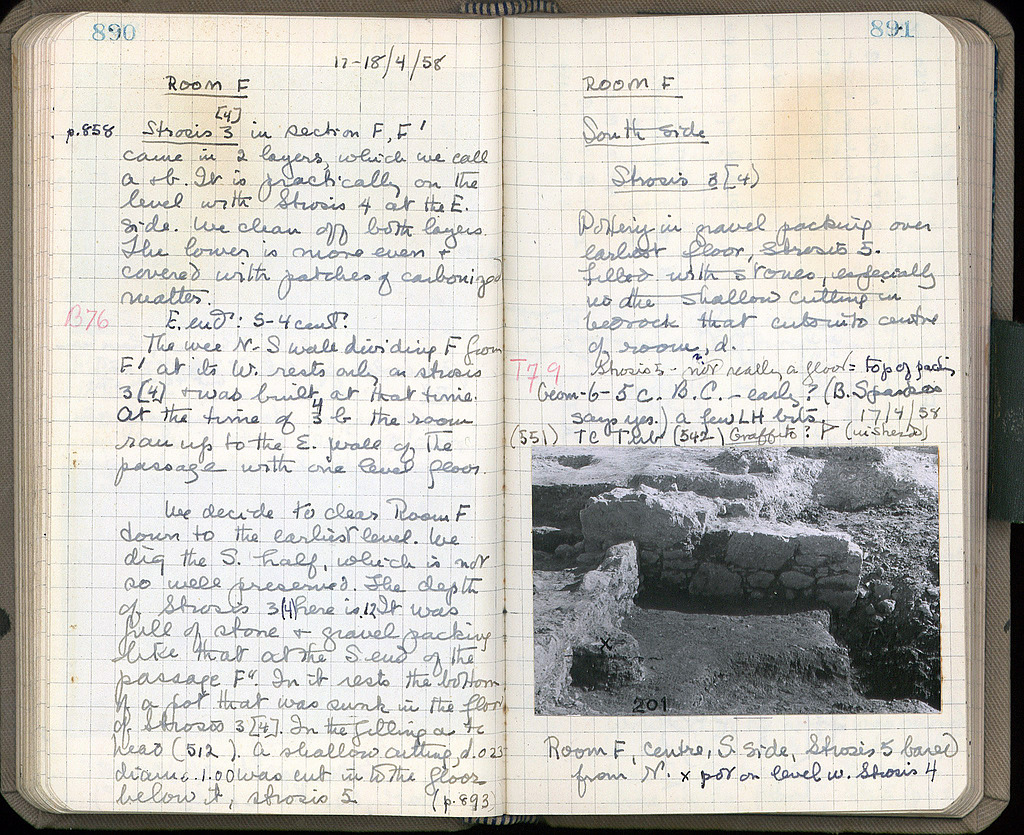 890
17-18/4/58
Room F
[4]
p.858 Strosis 3 in section F, F'
came in 2 layers, which we call
a + b. It is practically on the
level with Strosis 4 at the E.
side. We clean off both layers.
The lower is more even +
covered with patches of carbonized
matter.
B76
E. end: 5-4 cent.
The wee N-S wall dividing F from
F' at its W. rests only on strosis
3[4] + was built at that time.
At the time of 3 4 b the room
ran up to the E. wall of the
passage with one level floor.
We decide to clear Room F
down to the earliest level. We
dig the S. half, which is not
so well preserved. The depth
of Strosis 3(4) here is .12 It was
full of stone + gravel packing
like that at the S. end of the
passage F". In it rests the bottom
of a pot that was sunk in the floor
of Strosis 3[4]. In the filling a tc
head (512). A shallow cutting, d. 023
diam. 1.00 was cut into the floor
below it, strosis 5
(p.893)
891
Room F
South side
Strosis 3[4)
Pottery in gravel packing over
earliest floor, Strosis 5.
filled with stones, especially
in the shallow cutting in
bedrock that cuts into centre
of room, d.
Strosis 5 - not really a floor = top of packing
T79
Geom - 6-5 c. B.C. - early? (B.S.
says yes.) a few LH bits.
17/4/58
(551) TC (542) Graffito?
201
Room F, centre, S. side, Strosis 5 bared
from N. x pot on level w. Strosis 4